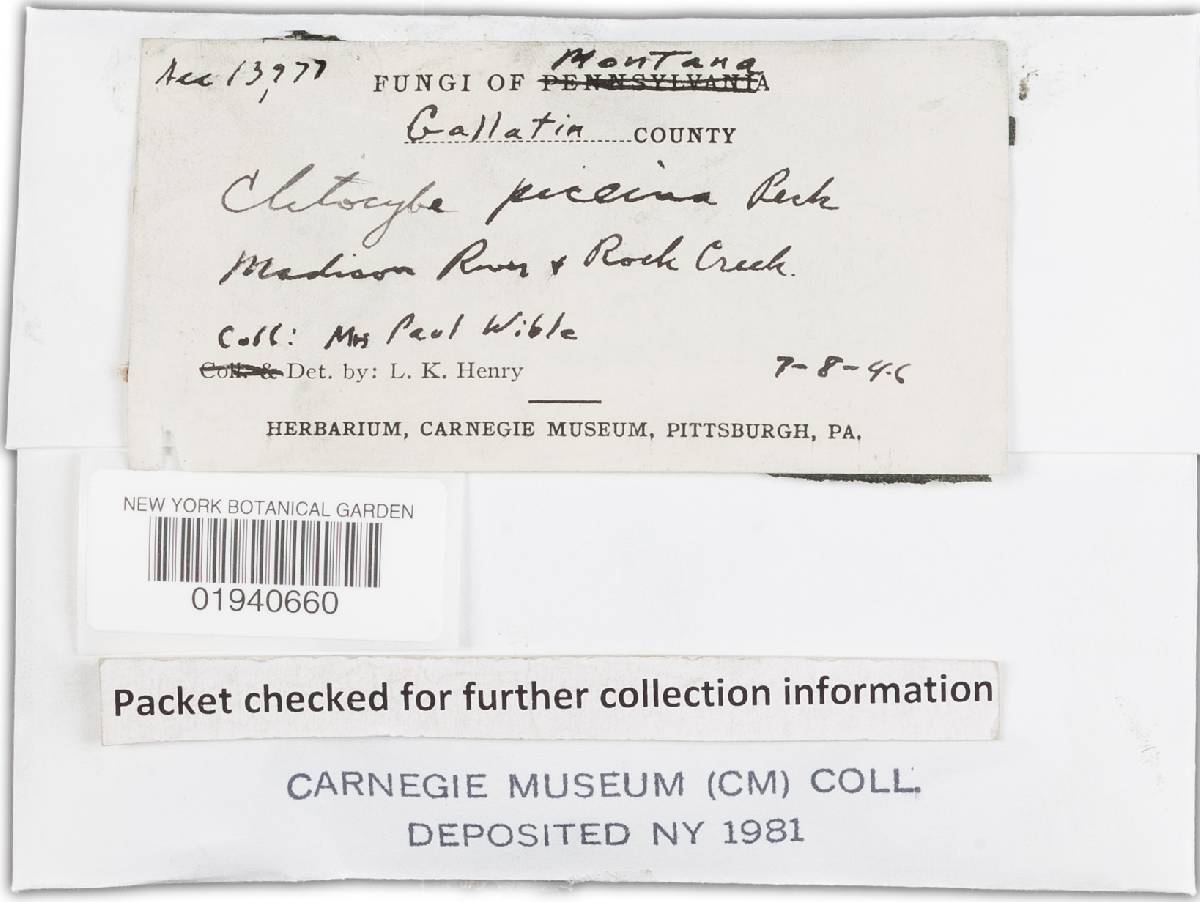 Acc 13,977
FUNGI OF PENNSYLVANIA Montana
Gallatin COUNTY
Clitocybe piceina Peck
Madison River & Rock Creek.
Coll: Mrs Paul Wible
Coll. & Det. by: L. K. Henry 7-8-46
HERBARIUM, CARNEGIE MUSEUM, PITTSBURGH, PA.
NEW YORK BOTANICAL GARDEN
01940660
Packet checked for further collection information
CARNEGIE MUSEUM (CM) COLL.
DEPOSITED NY 1981